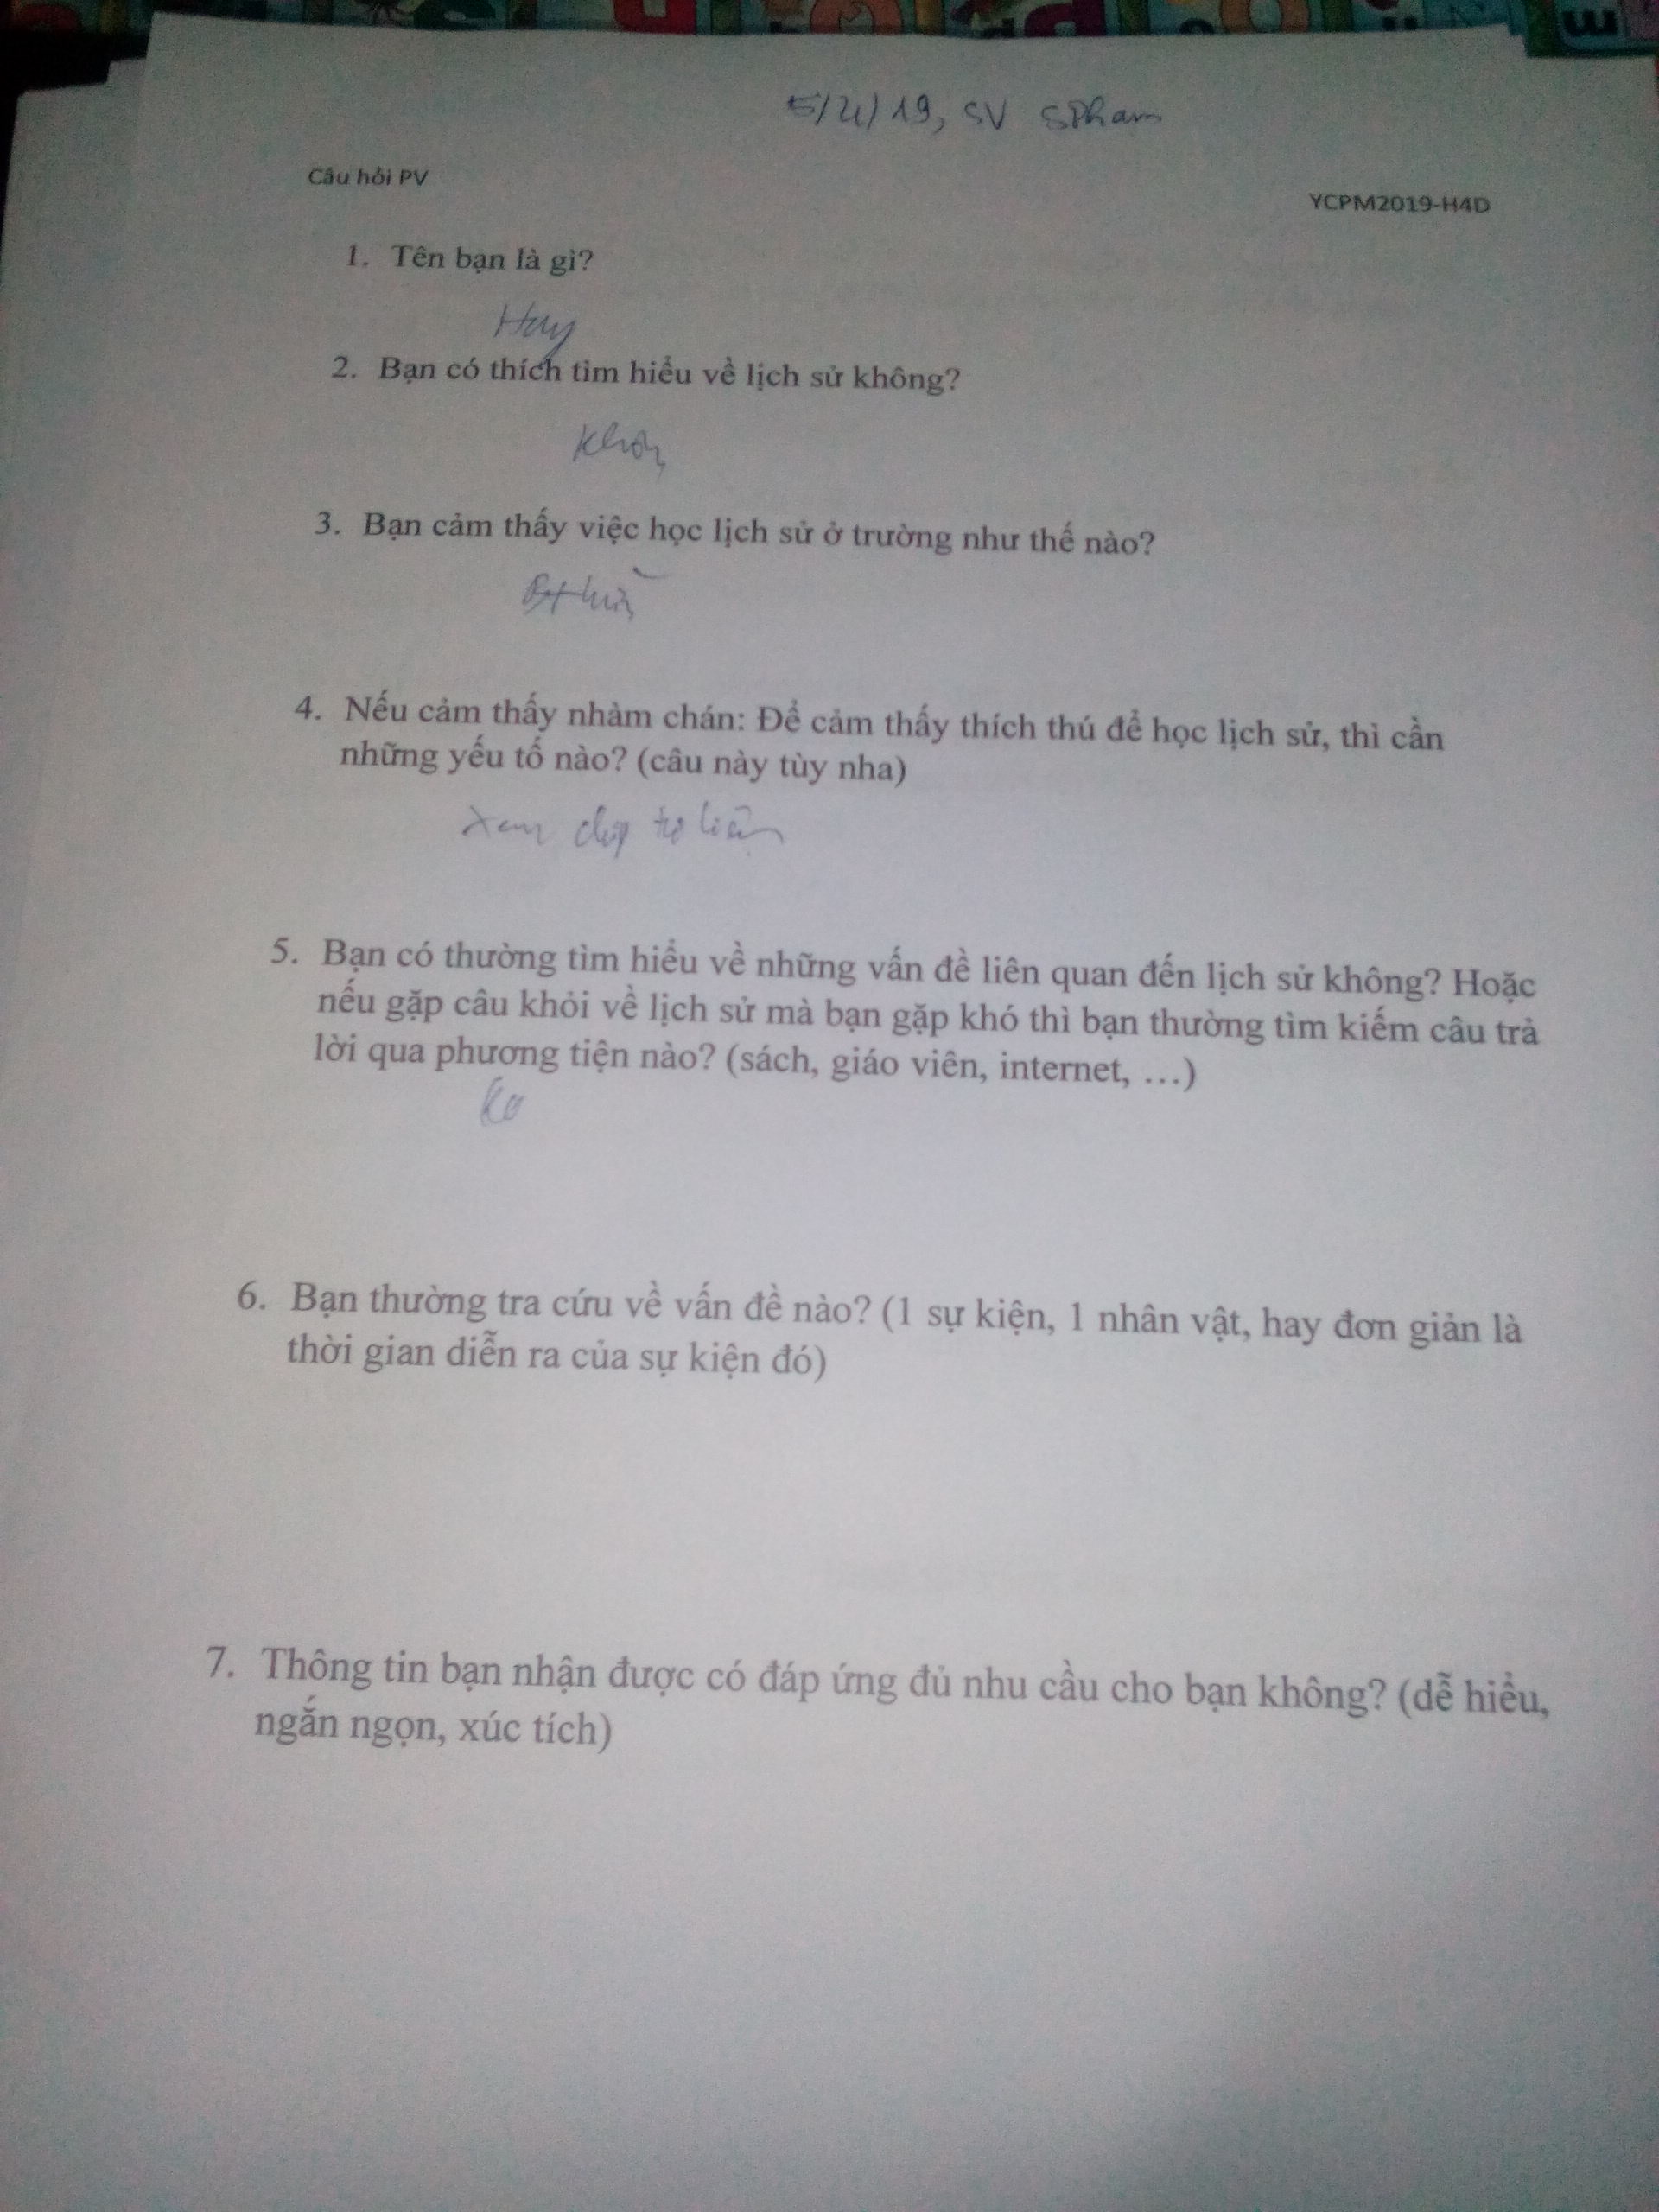 5/4/19, SV SPham
Câu hỏi PV
YCPM2019-H4D
1. Tên bạn là gì?
Huy
2. Bạn có thích tìm hiểu về lịch sử không?
Không
3. Bạn cảm thấy việc học lịch sử ở trường như thế nào?
4. Nếu cảm thấy nhàm chán: Để cảm thấy thích thú để học lịch sử, thì cần
những yếu tố nào? (câu này tùy nha)
Xem clip tư liệu
5. Bạn có thường tìm hiểu về những vấn đề liên quan đến lịch sử không? Hoặc
nếu gặp câu khỏi về lịch sử mà bạn gặp khó thì bạn thường tìm kiếm câu trả
lời qua phương tiện nào? (sách, giáo viên, internet, …)
Ko
6. Bạn thường tra cứu về vấn đề nào? (1 sự kiện, 1 nhân vật, hay đơn giản là
thời gian diễn ra của sự kiện đó)
7. Thông tin bạn nhận được có đáp ứng đủ nhu cầu cho bạn không? (dễ hiểu,
ngắn ngọn, xúc tích)